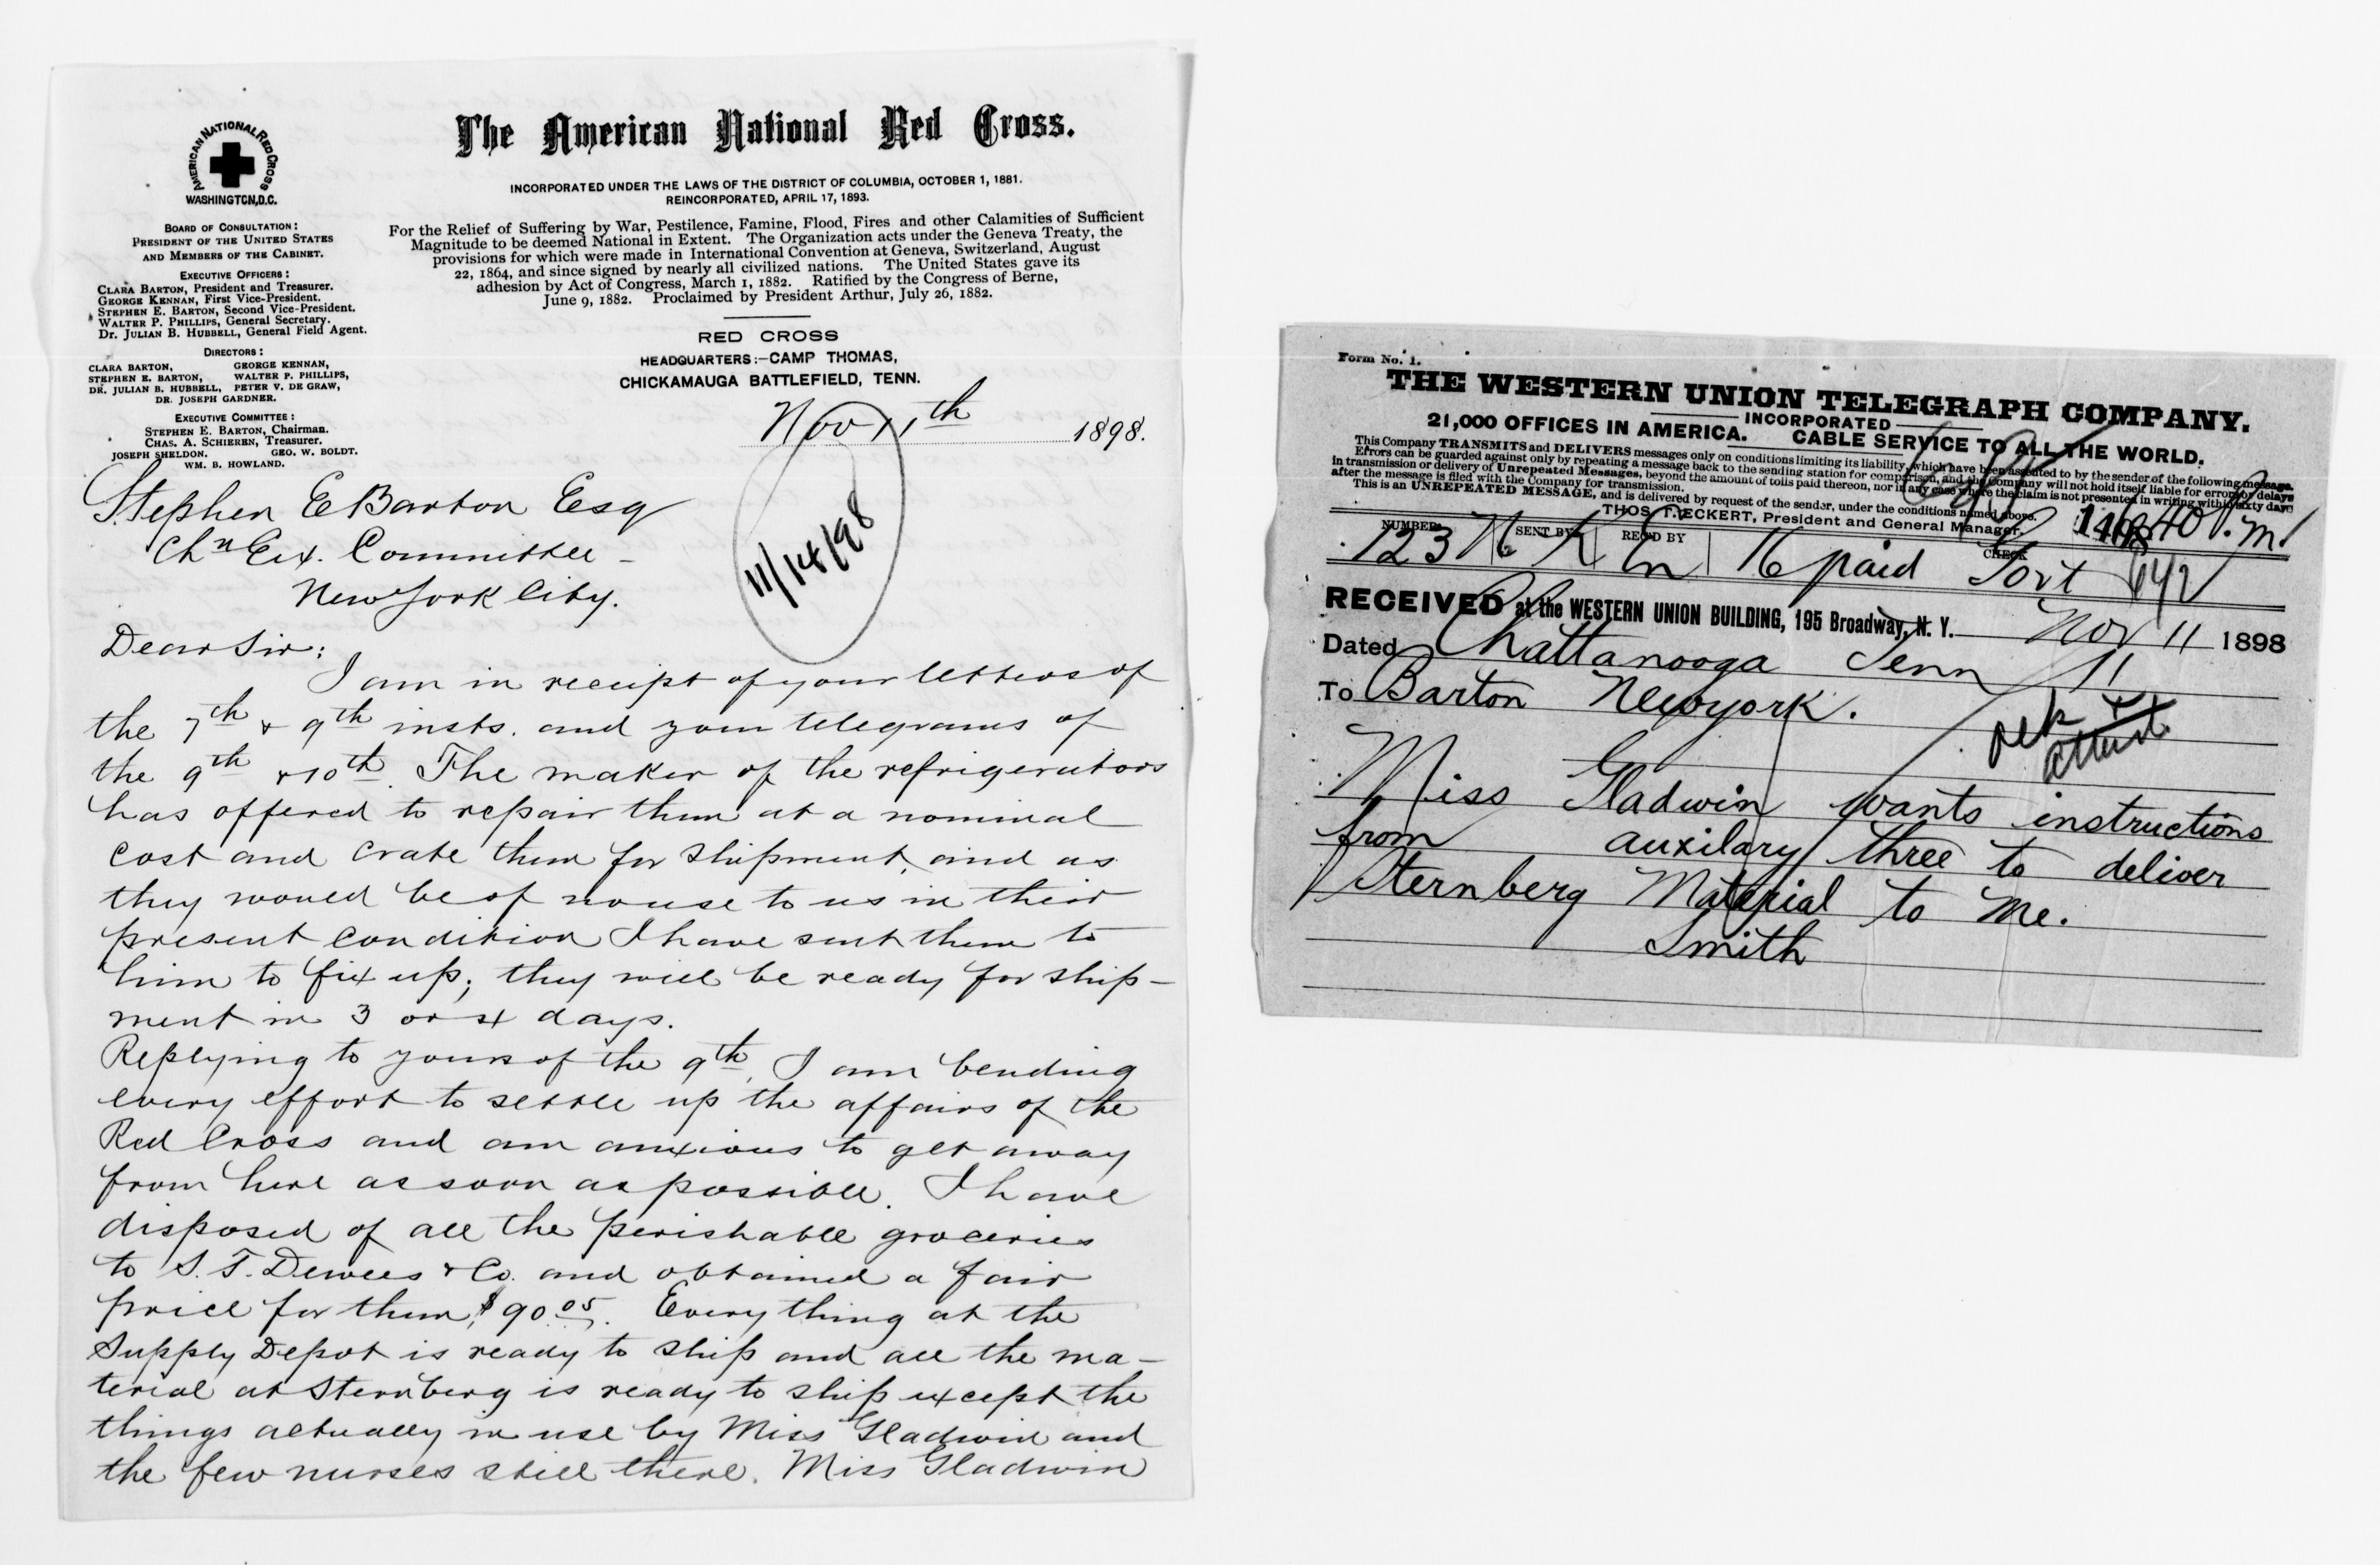 AMERICAN NATIONAL RED CROSS
WASHINGTON, D.C.
BOARD OF CONSULTATION:
PRESIDENT OF THE UNITED STATES
AND MEMBERS OF THE CABINET.
EXECUTIVE OFFICERS:
CLARA BARTON, President and Treasurer.
GEORGE KENNAN, First Vice-President.
STEPHEN E. BARTON, Second Vice-President.
WALTER P. PHILLIPS, General Secretary.
Dr. JULIAN B. HUBBELL, General Field Agent.
DIRECTORS:
CLARA BARTON, GEORGE KENNAN,
STEPHEN E. BARTON, WALTER P. PHILLIPS,
DR. JULIAN B. HUBBELL, PETER V. DE GRAW,
DR. JOSEPH GARDNER.
EXECUTIVE COMMITTEE:
STEPHEN E. BARTON, Chairman.
CHAS. A. SCHIEREN, Treasurer.
JOSEPH SHELDON. GEO. W. BOLDT.
WM. B. HOWLAND.
The American National Red Cross.
INCORPORATED UNDER THE LAWS OF THE DISTRICT OF COLUMBIA, OCTOBER 1, 1881.
REINCORPORATED, APRIL 17, 1893.
For the Relief of Suffering by War, Pestilence, Famine, Flood, Fires and other Calamities of Sufficient
Magnitude to be deemed National in Extent. The Organization acts under the Geneva Treaty, the
provisions for which were made in International Convention at Geneva, Switzerland, August
22, 1864, and since signed by nearly all civilized nations. The United States gave its
adhesion by Act of Congress, March 1, 1882. Ratified by the Congress of Berne,
June 9, 1882. Proclaimed by President Arthur, July 26, 1882.
RED CROSS
HEADQUARTERS:—CAMP THOMAS,
CHICKAMAUGA BATTLEFIELD, TENN.
Nov 11th 1898.
11/14/98
Stephen E Barton Esq
Chn Ex. Committee -
New York City.
Dear Sir:
I am in receipt of your letters of
the 7th & 9th insts. and your telegrams of
the 9th & 10th. The maker of the refrigerators
has offered to repair them at a nominal
cost and crate them for shipment, and as
they would be of no use to us in their
present condition I have sent them to
him to fix up; they will be ready for ship-
ment in 3 or 4 days.
Replying to yours of the 9th, I am bending
every effort to settle up the affairs of the
Red Cross and am anxious to get away
from here as soon as possible. I have
disposed of all the perishable groceries
to S. T. Dewees & Co. and obtained a fair
price for them, $90.05. Everything at the
Supply Depot is ready to ship and all the ma-
terial at Sternberg is ready to ship except the
things actually in use by Miss Gladwin and
the few nurses still there. Miss Gladwin
Form No. 1.
THE WESTERN UNION TELEGRAPH COMPANY.
INCORPORATED
21,000 OFFICES IN AMERICA. CABLE SERVICE TO ALL THE WORLD.
This Company TRANSMITS and DELIVERS messages only on conditions limiting its liability, which have been assented to by the sender of the following message.
Errors can be guarded against only by repeating a message back to the sending station for comparison, and the Company will not hold itself liable for errors or delays
in transmission or delivery of Unrepeated Messages, beyond the amount of tolls paid thereon, nor in any case where the claim is not presented in writing within sixty days
after the message is filed with the Company for transmission.
This is an UNREPEATED MESSAGE, and is delivered by request of the sender, under the conditions named above.
THOS. T. ECKERT, President and General Manager.
NUMBER SENT BY REC'D BY CHECK
123 16 paid Govt
RECEIVED at the WESTERN UNION BUILDING, 195 Broadway, N. Y. Nov 11 1898
Dated Chattanooga Tenn 11
To Barton Newyork.
Miss Gladwin wants instructions
from auxilary three to deliver
Sternberg Material to me.
Smith